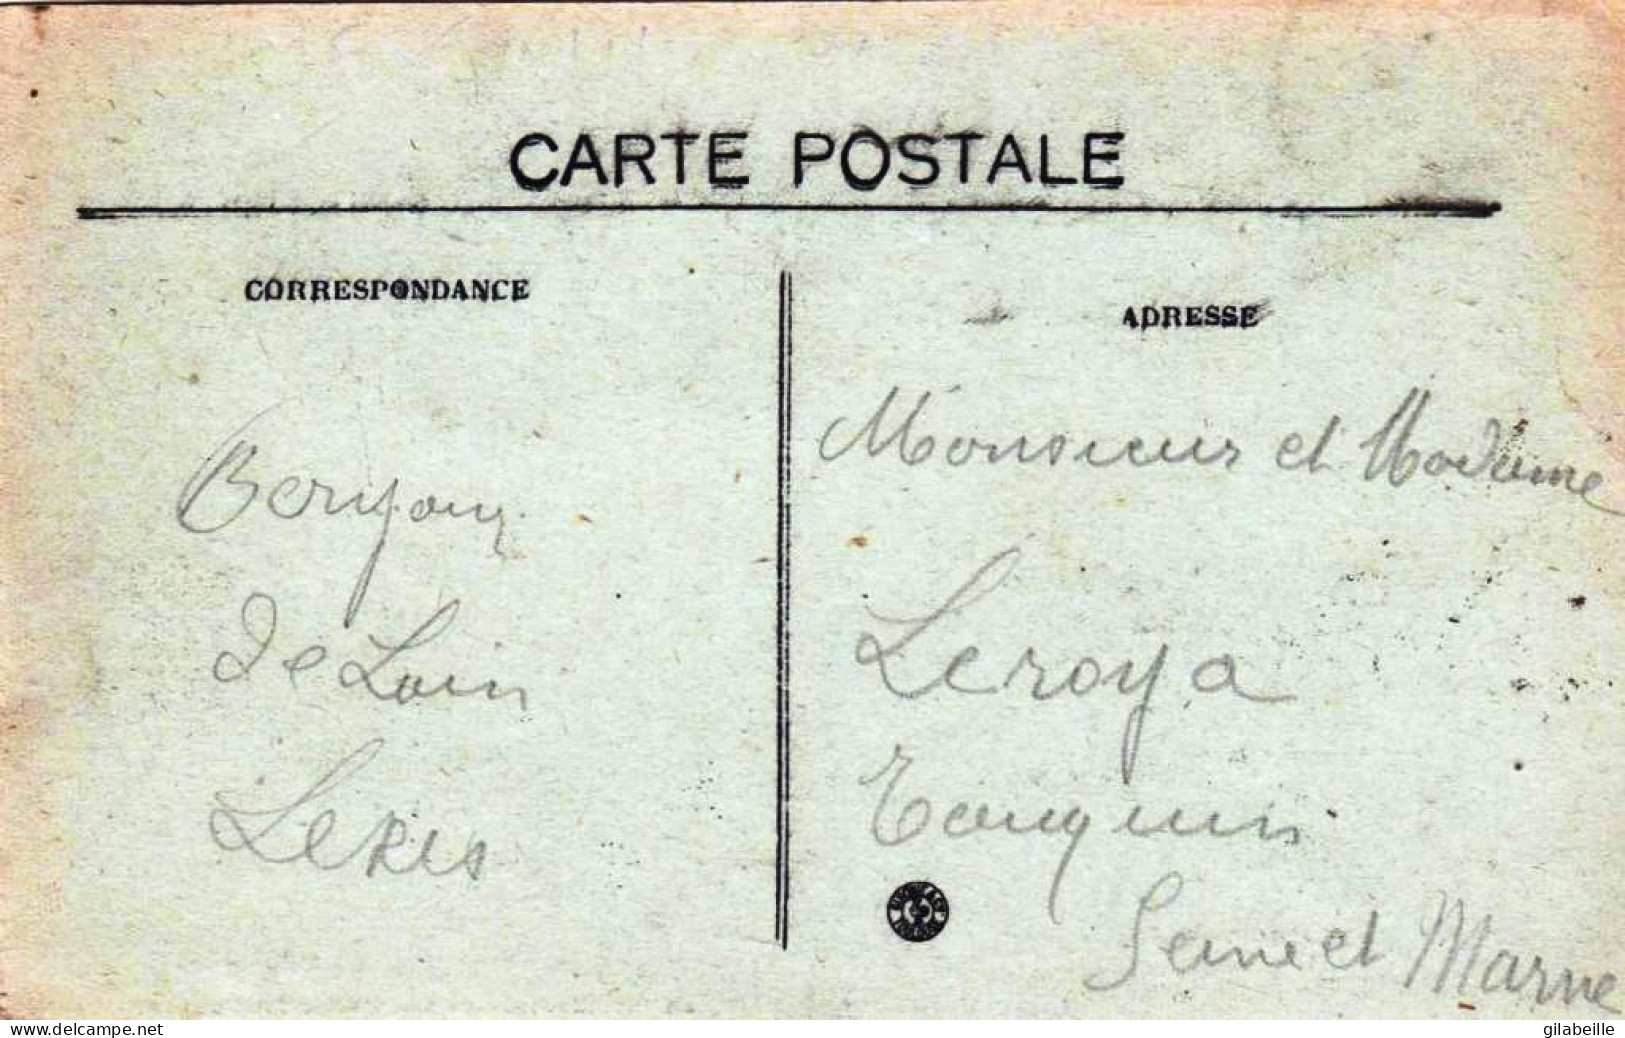 CARTE POSTALE
CORRESPONDANCE
Bonjour
de Loin
ADRESSE
Monsieur et Madame
Leroy a
Touquin
Seine et Marne
www.delcampe.net
gilabeille